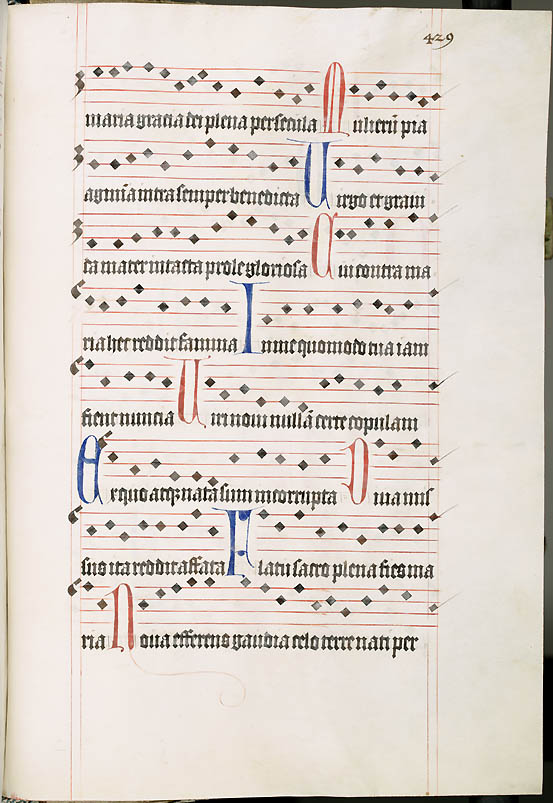 429
maria gracia dei plena per secula Mulierū pia
agmīa intra semper benedicta Virgo et gravi
da mater intacta prole gloriosa Cui contra ma
ria hec reddit famina In me quomodo tua iam
fient nuncia Viri novi nullā certe copulam
Ex quo atqꝫ nata sum incorrupta Diva mis
sus ita reddit affata Flatu sacro plena fies ma
ria Nova efferens gaudia celo terre nati per